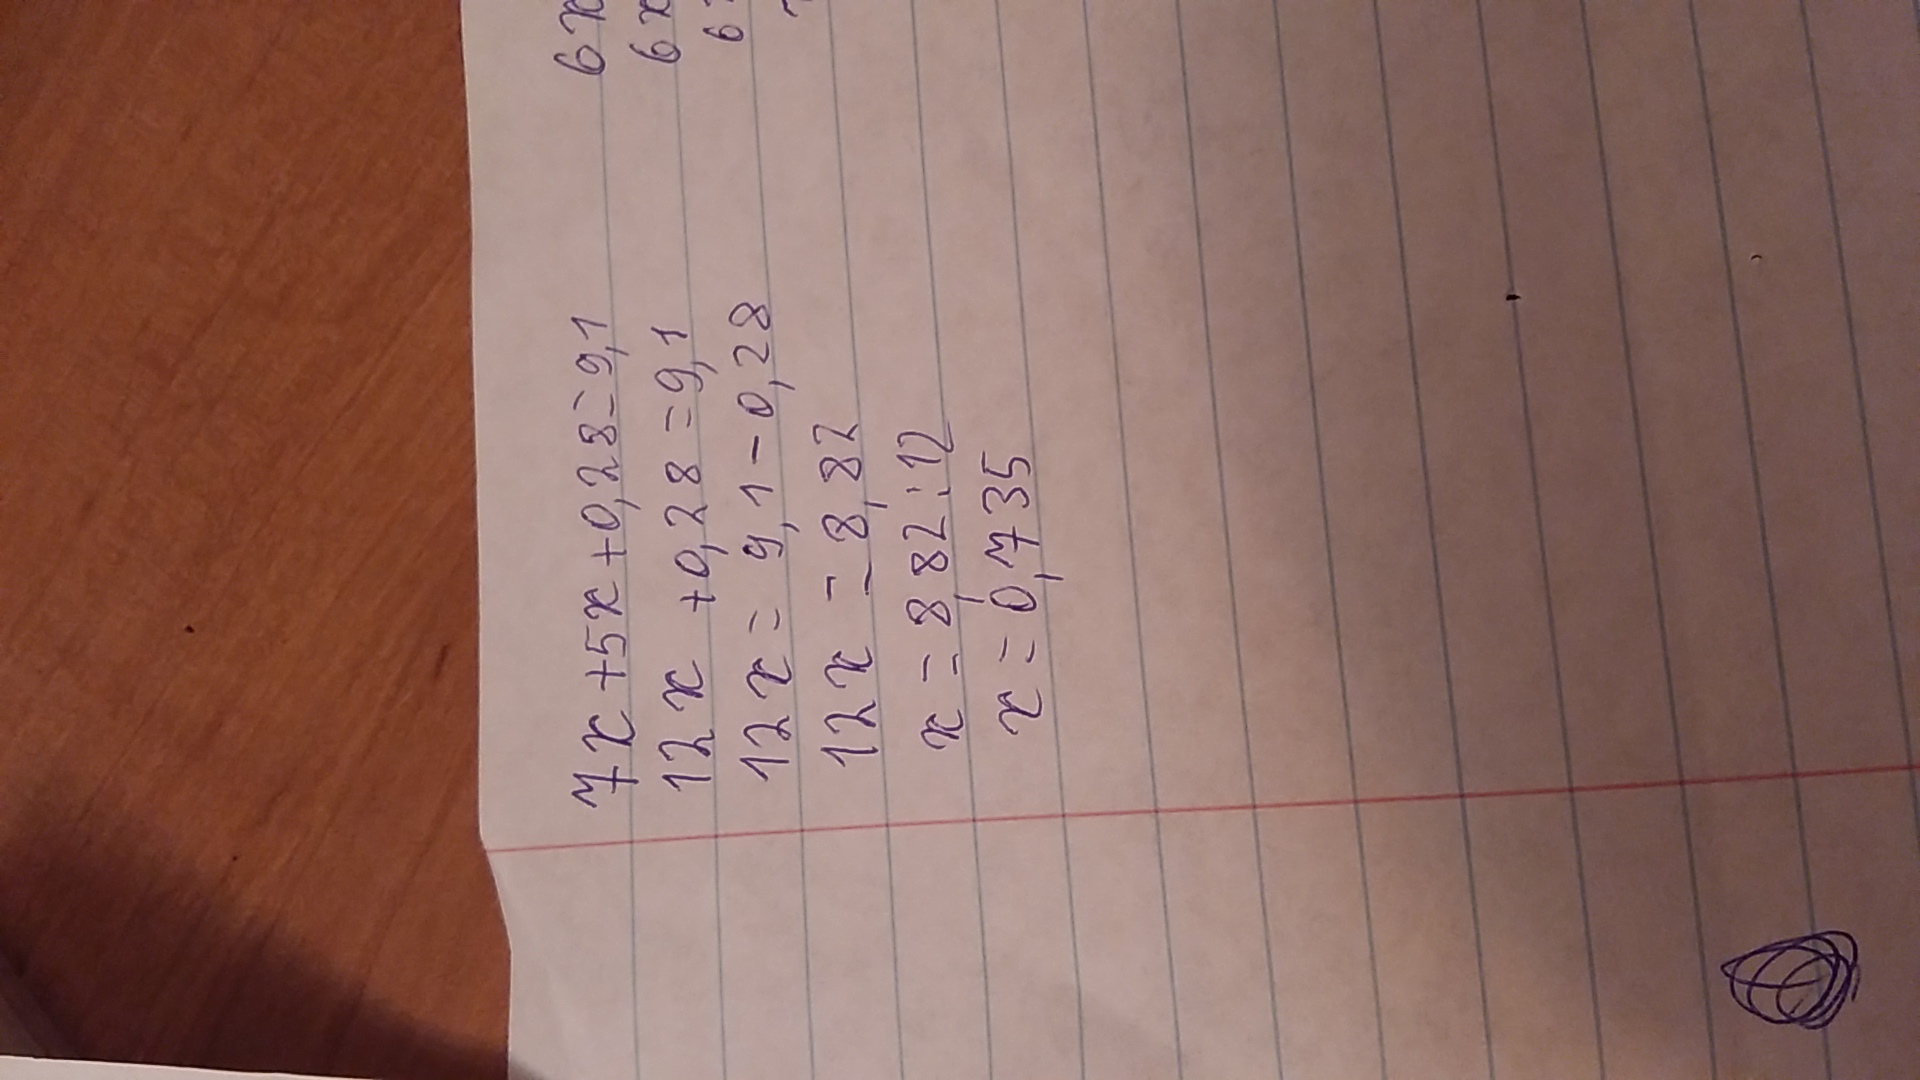 7x+5x+0,28=9,1
12x +0,28=9,1
12x=9,1-0,28
12x=8,82
x=8,82:12
x=0,735
6x
6x
6